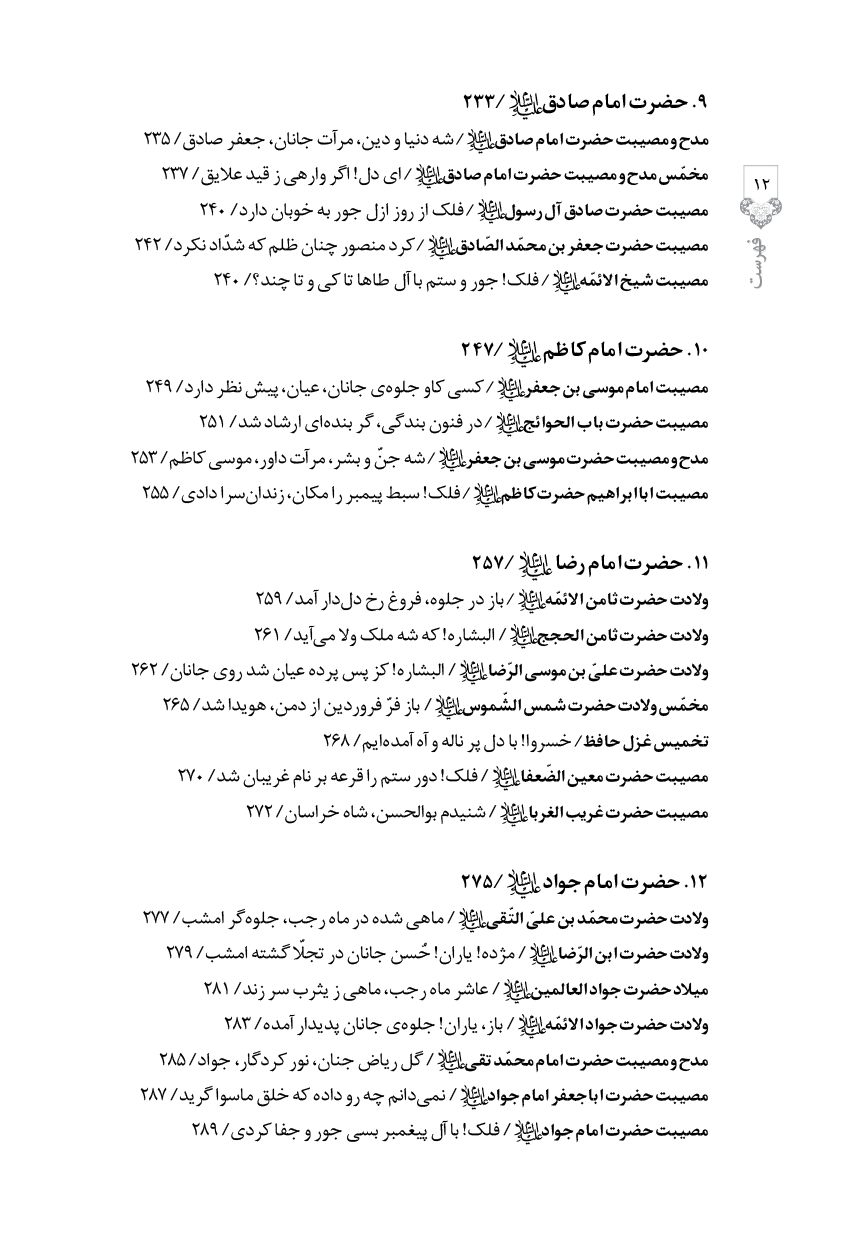 ۱۲
فهرست
۹. حضرت امام صادق علیه‌السلام / ۲۳۳
مدح و مصیبت حضرت امام صادق علیه‌السلام / شه دنیا و دین، مرآت جانان، جعفر صادق / ۲۳۵
مخمّس مدح و مصیبت حضرت امام صادق علیه‌السلام / ای دل! اگر وارهی ز قید علایق / ۲۳۷
مصیبت حضرت صادق آل رسول علیه‌السلام / فلک از روز ازل جور به خوبان دارد / ۲۴۰
مصیبت حضرت جعفر بن محمّد الصّادق علیه‌السلام / کرد منصور چنان ظلم که شدّاد نکرد / ۲۴۲
مصیبت شیخ الائمّه علیه‌السلام / فلک! جور و ستم با آل طاها تا کی و تا چند؟ / ۲۴۰
۱۰. حضرت امام کاظم علیه‌السلام / ۲۴۷
مصیبت امام موسی بن جعفر علیه‌السلام / کسی کاو جلوه‌ی جانان، عیان، پیش نظر دارد / ۲۴۹
مصیبت حضرت باب الحوائج علیه‌السلام / در فنون بندگی، گر بنده‌ای ارشاد شد / ۲۵۱
مدح و مصیبت حضرت موسی بن جعفر علیه‌السلام / شه جنّ و بشر، مرآت داور، موسی کاظم / ۲۵۳
مصیبت ابا ابراهیم حضرت کاظم علیه‌السلام / فلک! سبط پیمبر را مکان، زندان‌سرا دادی / ۲۵۵
۱۱. حضرت امام رضا علیه‌السلام / ۲۵۷
ولادت حضرت ثامن الائمّه علیه‌السلام / باز در جلوه، فروغ رخ دل‌دار آمد / ۲۵۹
ولادت حضرت ثامن الحجج علیه‌السلام / البشاره! که شه ملک ولا می‌آید / ۲۶۱
ولادت حضرت علیّ بن موسی الرّضا علیه‌السلام / البشاره! کز پس پرده عیان شد روی جانان / ۲۶۲
مخمّس ولادت حضرت شمس الشّموس علیه‌السلام / باز فرّ فروردین از دمن، هویدا شد / ۲۶۵
تخمیس غزل حافظ / خسروا! با دل پر ناله و آه آمده‌ایم / ۲۶۸
مصیبت حضرت معین الضّعفا علیه‌السلام / فلک! دور ستم را قرعه بر نام غریبان شد / ۲۷۰
مصیبت حضرت غریب الغربا علیه‌السلام / شنیدم بوالحسن، شاه خراسان / ۲۷۲
۱۲. حضرت امام جواد علیه‌السلام / ۲۷۵
ولادت حضرت محمّد بن علیّ التّقی علیه‌السلام / ماهی شده در ماه رجب، جلوه‌گر امشب / ۲۷۷
ولادت حضرت ابن الرّضا علیه‌السلام / مژده! یاران! حُسن جانان در تجلّا گشته امشب / ۲۷۹
میلاد حضرت جواد العالمین علیه‌السلام / عاشر ماه رجب، ماهی ز یثرب سر زند / ۲۸۱
ولادت حضرت جواد الائمّه علیه‌السلام / باز، یاران! جلوه‌ی جانان پدیدار آمده / ۲۸۳
مدح و مصیبت حضرت امام محمّد تقی علیه‌السلام / گل ریاض جنان، نور کردگار، جواد / ۲۸۵
مصیبت حضرت اباجعفر امام جواد علیه‌السلام / نمی‌دانم چه رو داده که خلق ماسوا گرید / ۲۸۷
مصیبت حضرت امام جواد علیه‌السلام / فلک! با آل پیغمبر بسی جور و جفا کردی / ۲۸۹